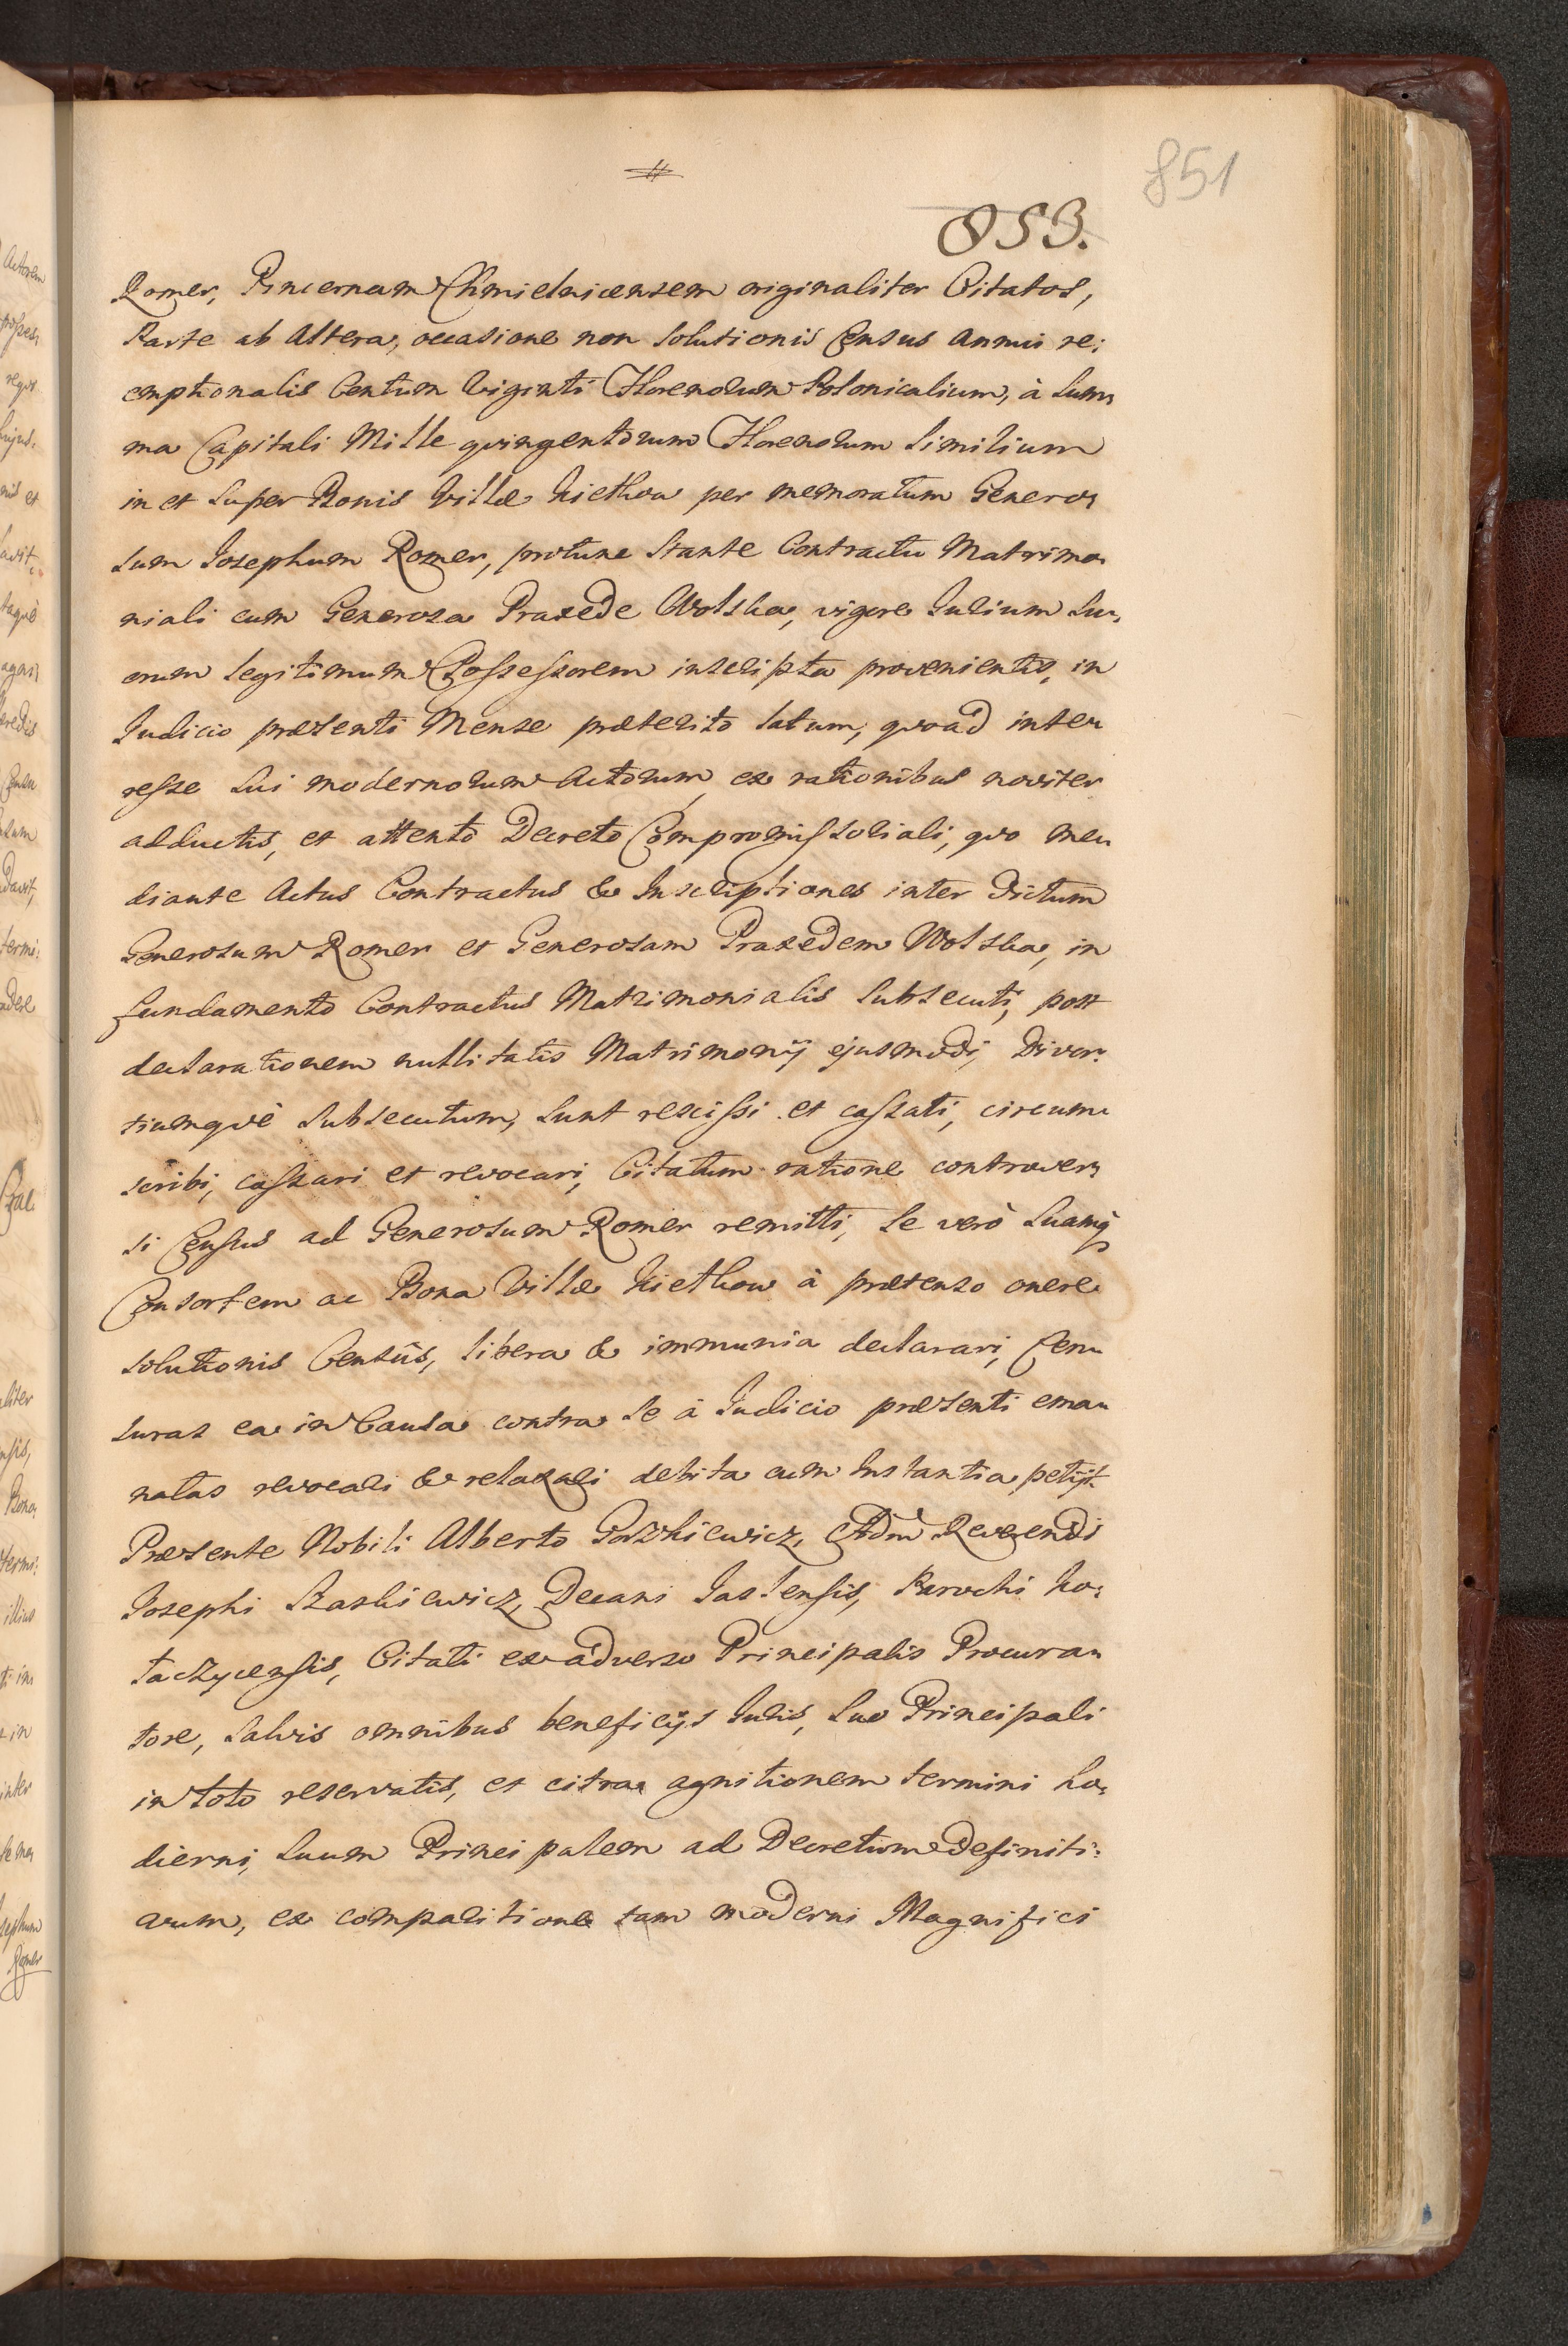 851
853.
Romer, Pincernam Chmielnicensem originaliter Citatos,
Parte ab Altera, occasione non Solutionis Census Annui re:
emptionalis Centum Viginti Florenorum Polonicalium, à Sum,
ma Capitali Mille quingentorum Florenorum Similium
in et Super Bonis Villæ Kietkow per memoratum Genero,
sum Josephum Romer, protunc Stante Contractu Matrimo,
niali cum Generosa Praxede Wolska, vigore Iurium Su,
orum legitimum Possessorem inscripta provenientis, in
Judicio præsenti Mense præterito latum, quoad inte,
resse Sui modernorum Actorum, ex rationibus noviter
adductis, et attento Decreto Compromissoriali, quo me,
diante Actus Contractus & Inscriptiones inter Dictum
Generosum Romer et Generosam Praxedem Wolska, in
fundamento Contractus Matrimonialis Subsecuti, post
declarationem nullitatis Matrimonij ejusmodi, Divor:
tiumquè Subsecutum, Sunt rescissi et cassati, circum,
scribi, cassari et revocari, Citatum ratione controver,
si Census ad Generosum Romer remitti, Se verò Suamq
Consortem ac Bona Villæ Kietkow à prætenso onere
Solutionis Censûs, libera & immunia declarari, Cen,
suras ea in Causa contra Se à Judicio præsenti ema,
natas revocari & relaxari debita cum Instantia petijt.
Præsente Nobili Alberto Goszkiewicz, Adm Reverendi
Josephi Staskiewicz, Decani Jaslensis, Parochi Ko:
taczycensis, Citati ex adverso Principalis Procura,
tore, Salvis omnibus beneficijs Iuris, Suo Principali
in toto reservatis, et citra agnitionem termini ho,
dierni, Suum Principalem ad Decretum Definiti:
vum, ex comparitione tam moderni Magnifici